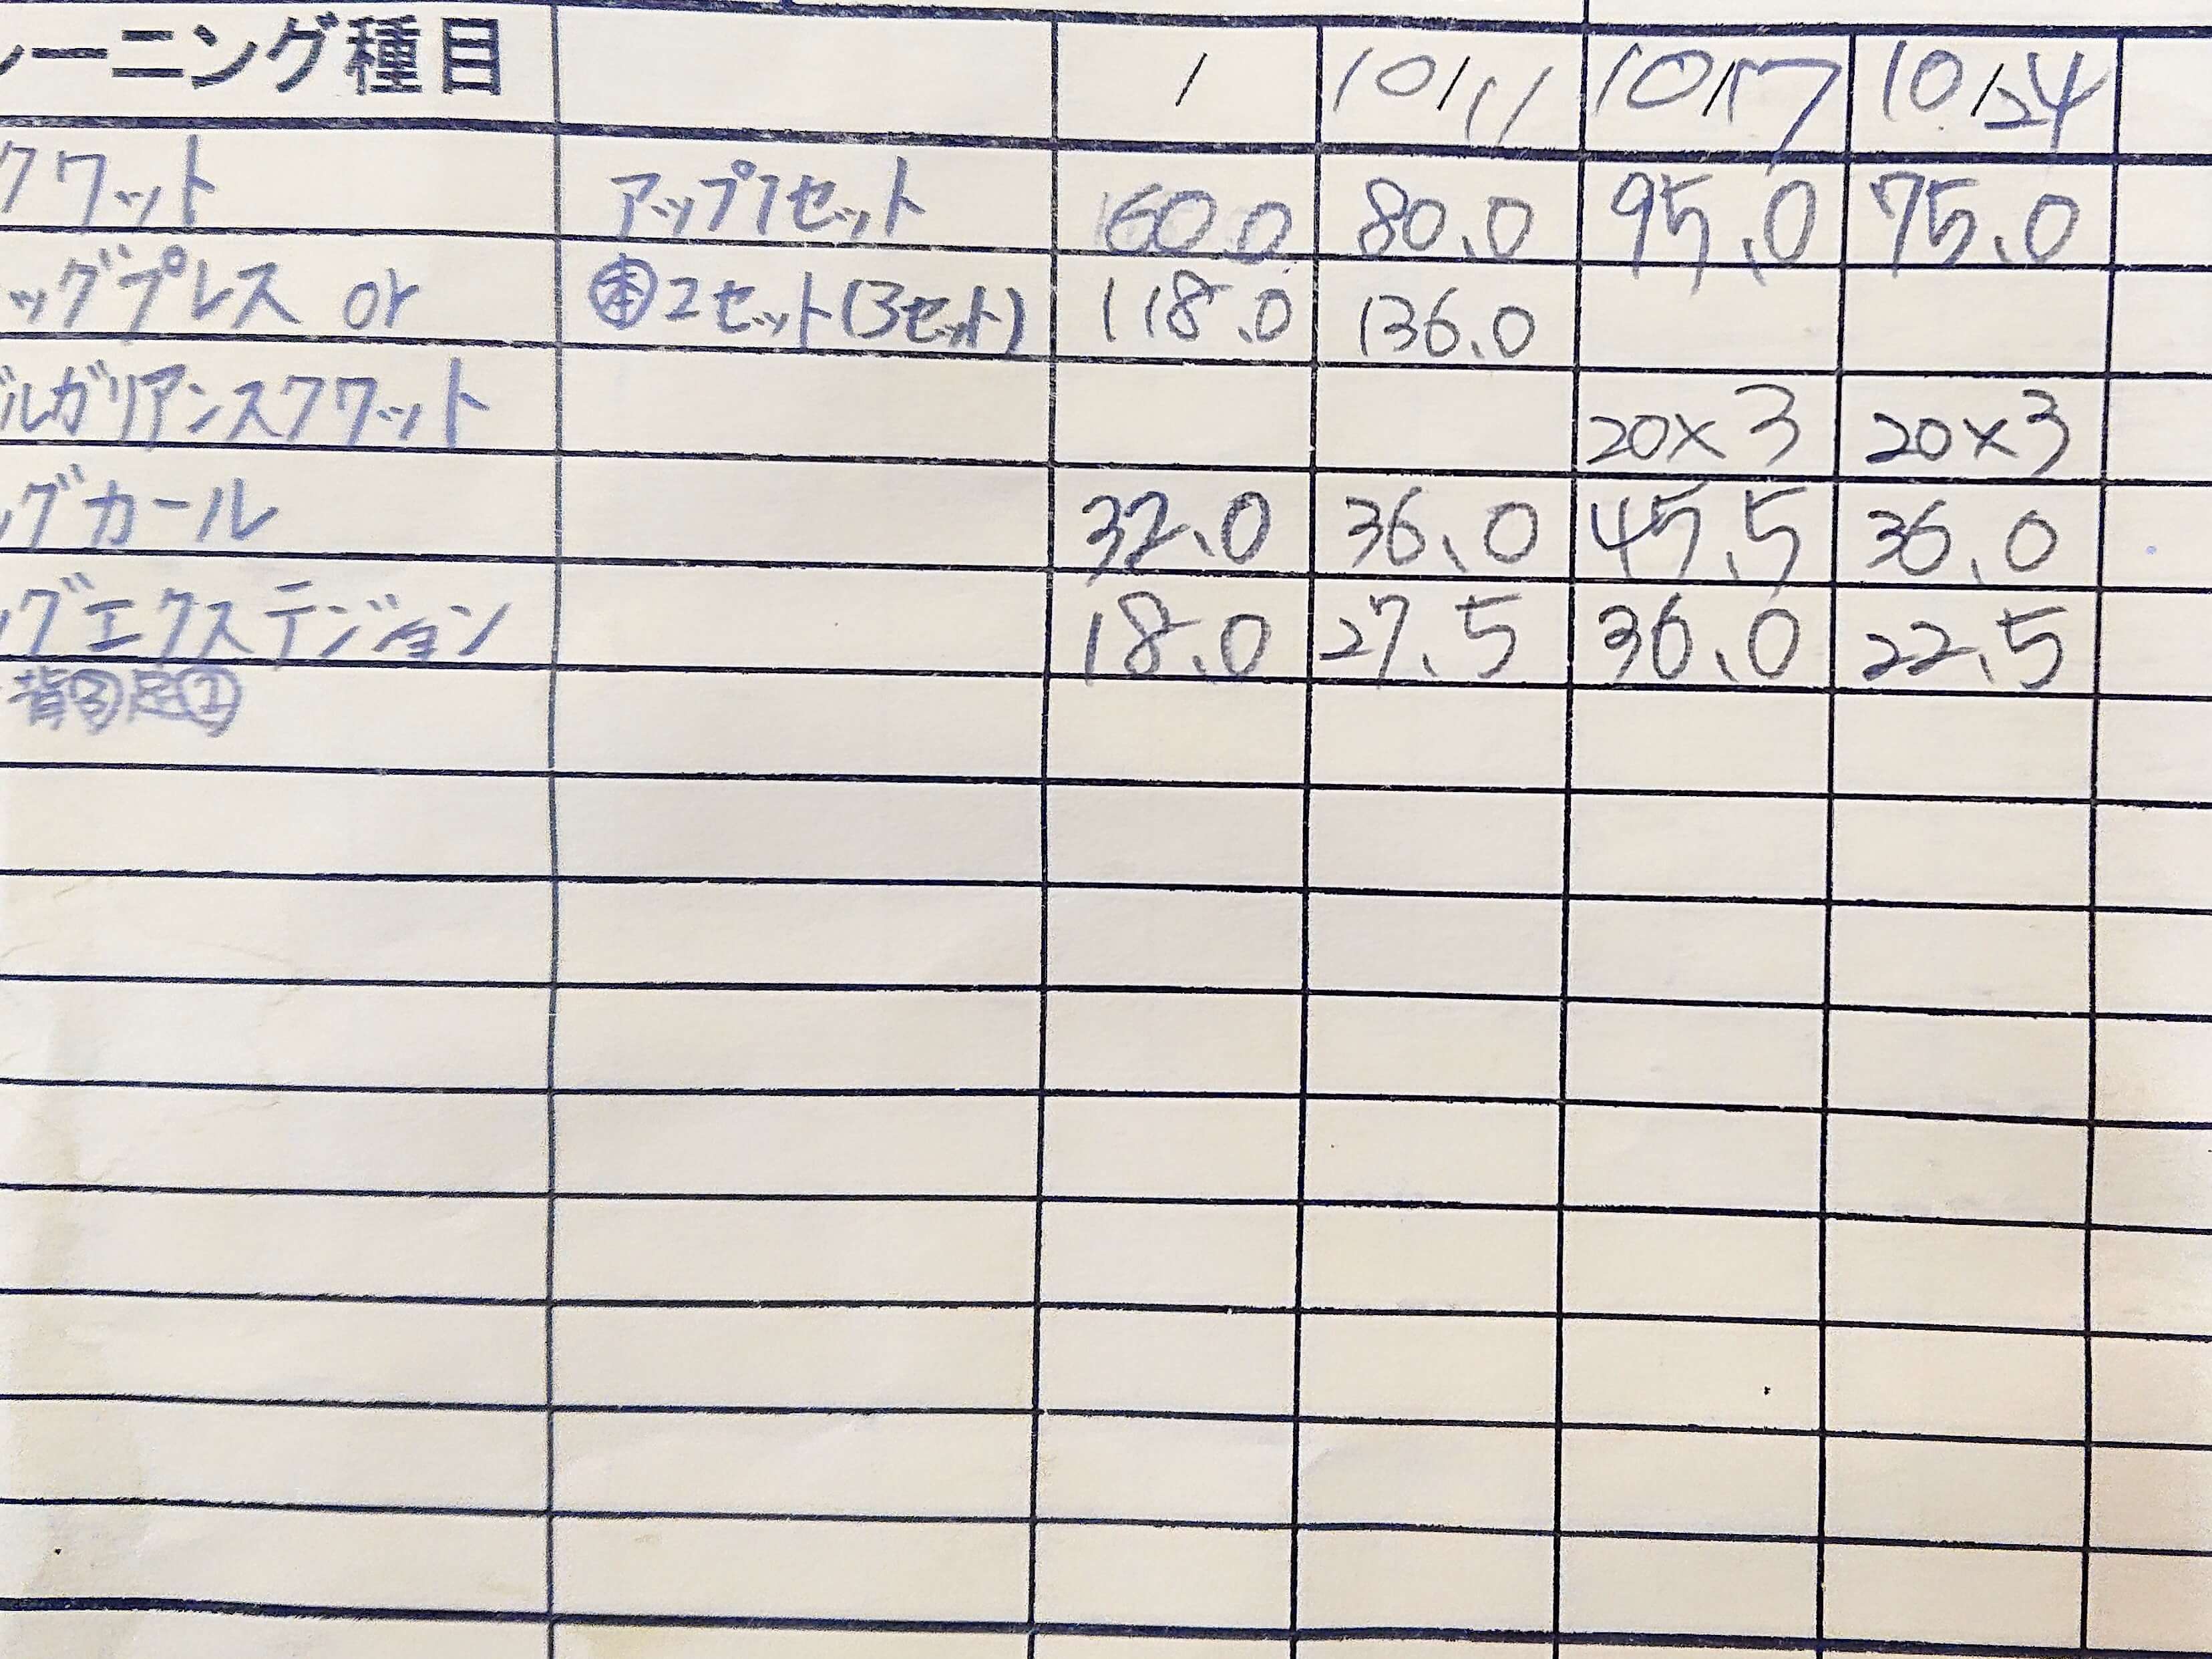 レーニング種目 / 10/11 10/17 10/24
クワット アップ1セット 60.0 80.0 95.0 75.0
ッグプレス or ㊍2セット(3セット) 118.0 136.0
ルガリアンスクワット 20×3 20×3
グカール 32.0 36.0 45.5 36.0
グエクステンション 18.0 27.5 36.0 22.5
背③足②